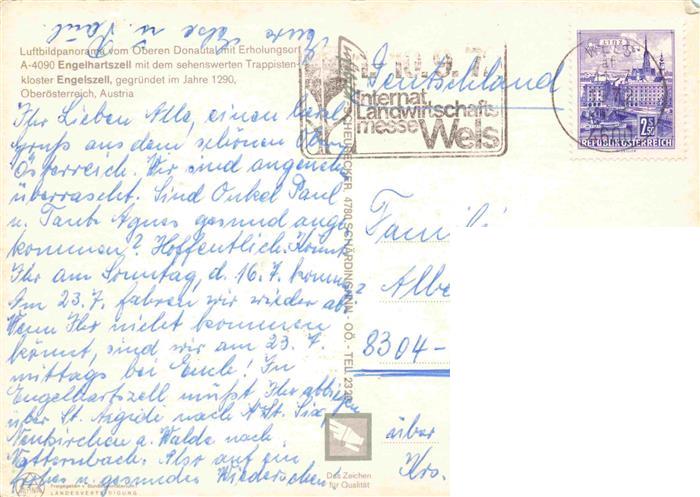 Eure Else u. Paul.
Luftbildpanorama vom Oberen Donautal mit Erholungsort
A-4090 Engelhartszell mit dem sehenswerten Trappisten-
kloster Engelszell, gegründet im Jahre 1290,
Oberösterreich, Austria
Ihr Lieben Alle, einen herzl.
gruß aus dem schönen Ober
Österreich. Wir sind angenehm
überrascht. Sind Onkel Paul
u. Tante Agnes gesund ange
kommen? Hoffentlich. Könnt
Ihr am Sonntag, d. 16.7. kommen
Am 23.7. fahren wir wieder ab.
Wenn Ihr nicht kommen
könnt, sind wir am 23.7.
mittags bei Euch! In
Engelhartszell müßt Ihr abbiegen
über St. Aegidi nach
Neukirchen a. Walde nach
Natternbach. Also auf ein
frohes u. gesundes Wiedersehen!
Freigegeben v. Bundesministerium f.
LANDESVERTEIDIGUNG
4780 SCHÄRDING/INN, OÖ. - TEL.
Das Zeichen
für Qualität
10.9.7
Internat.
Landwirtschafts
messe Wels
WELS
LINZ
2.50
S
REPUBLIK ÖSTERREICH
Deutschland
Famili
Albe
8304-
über
Krs.